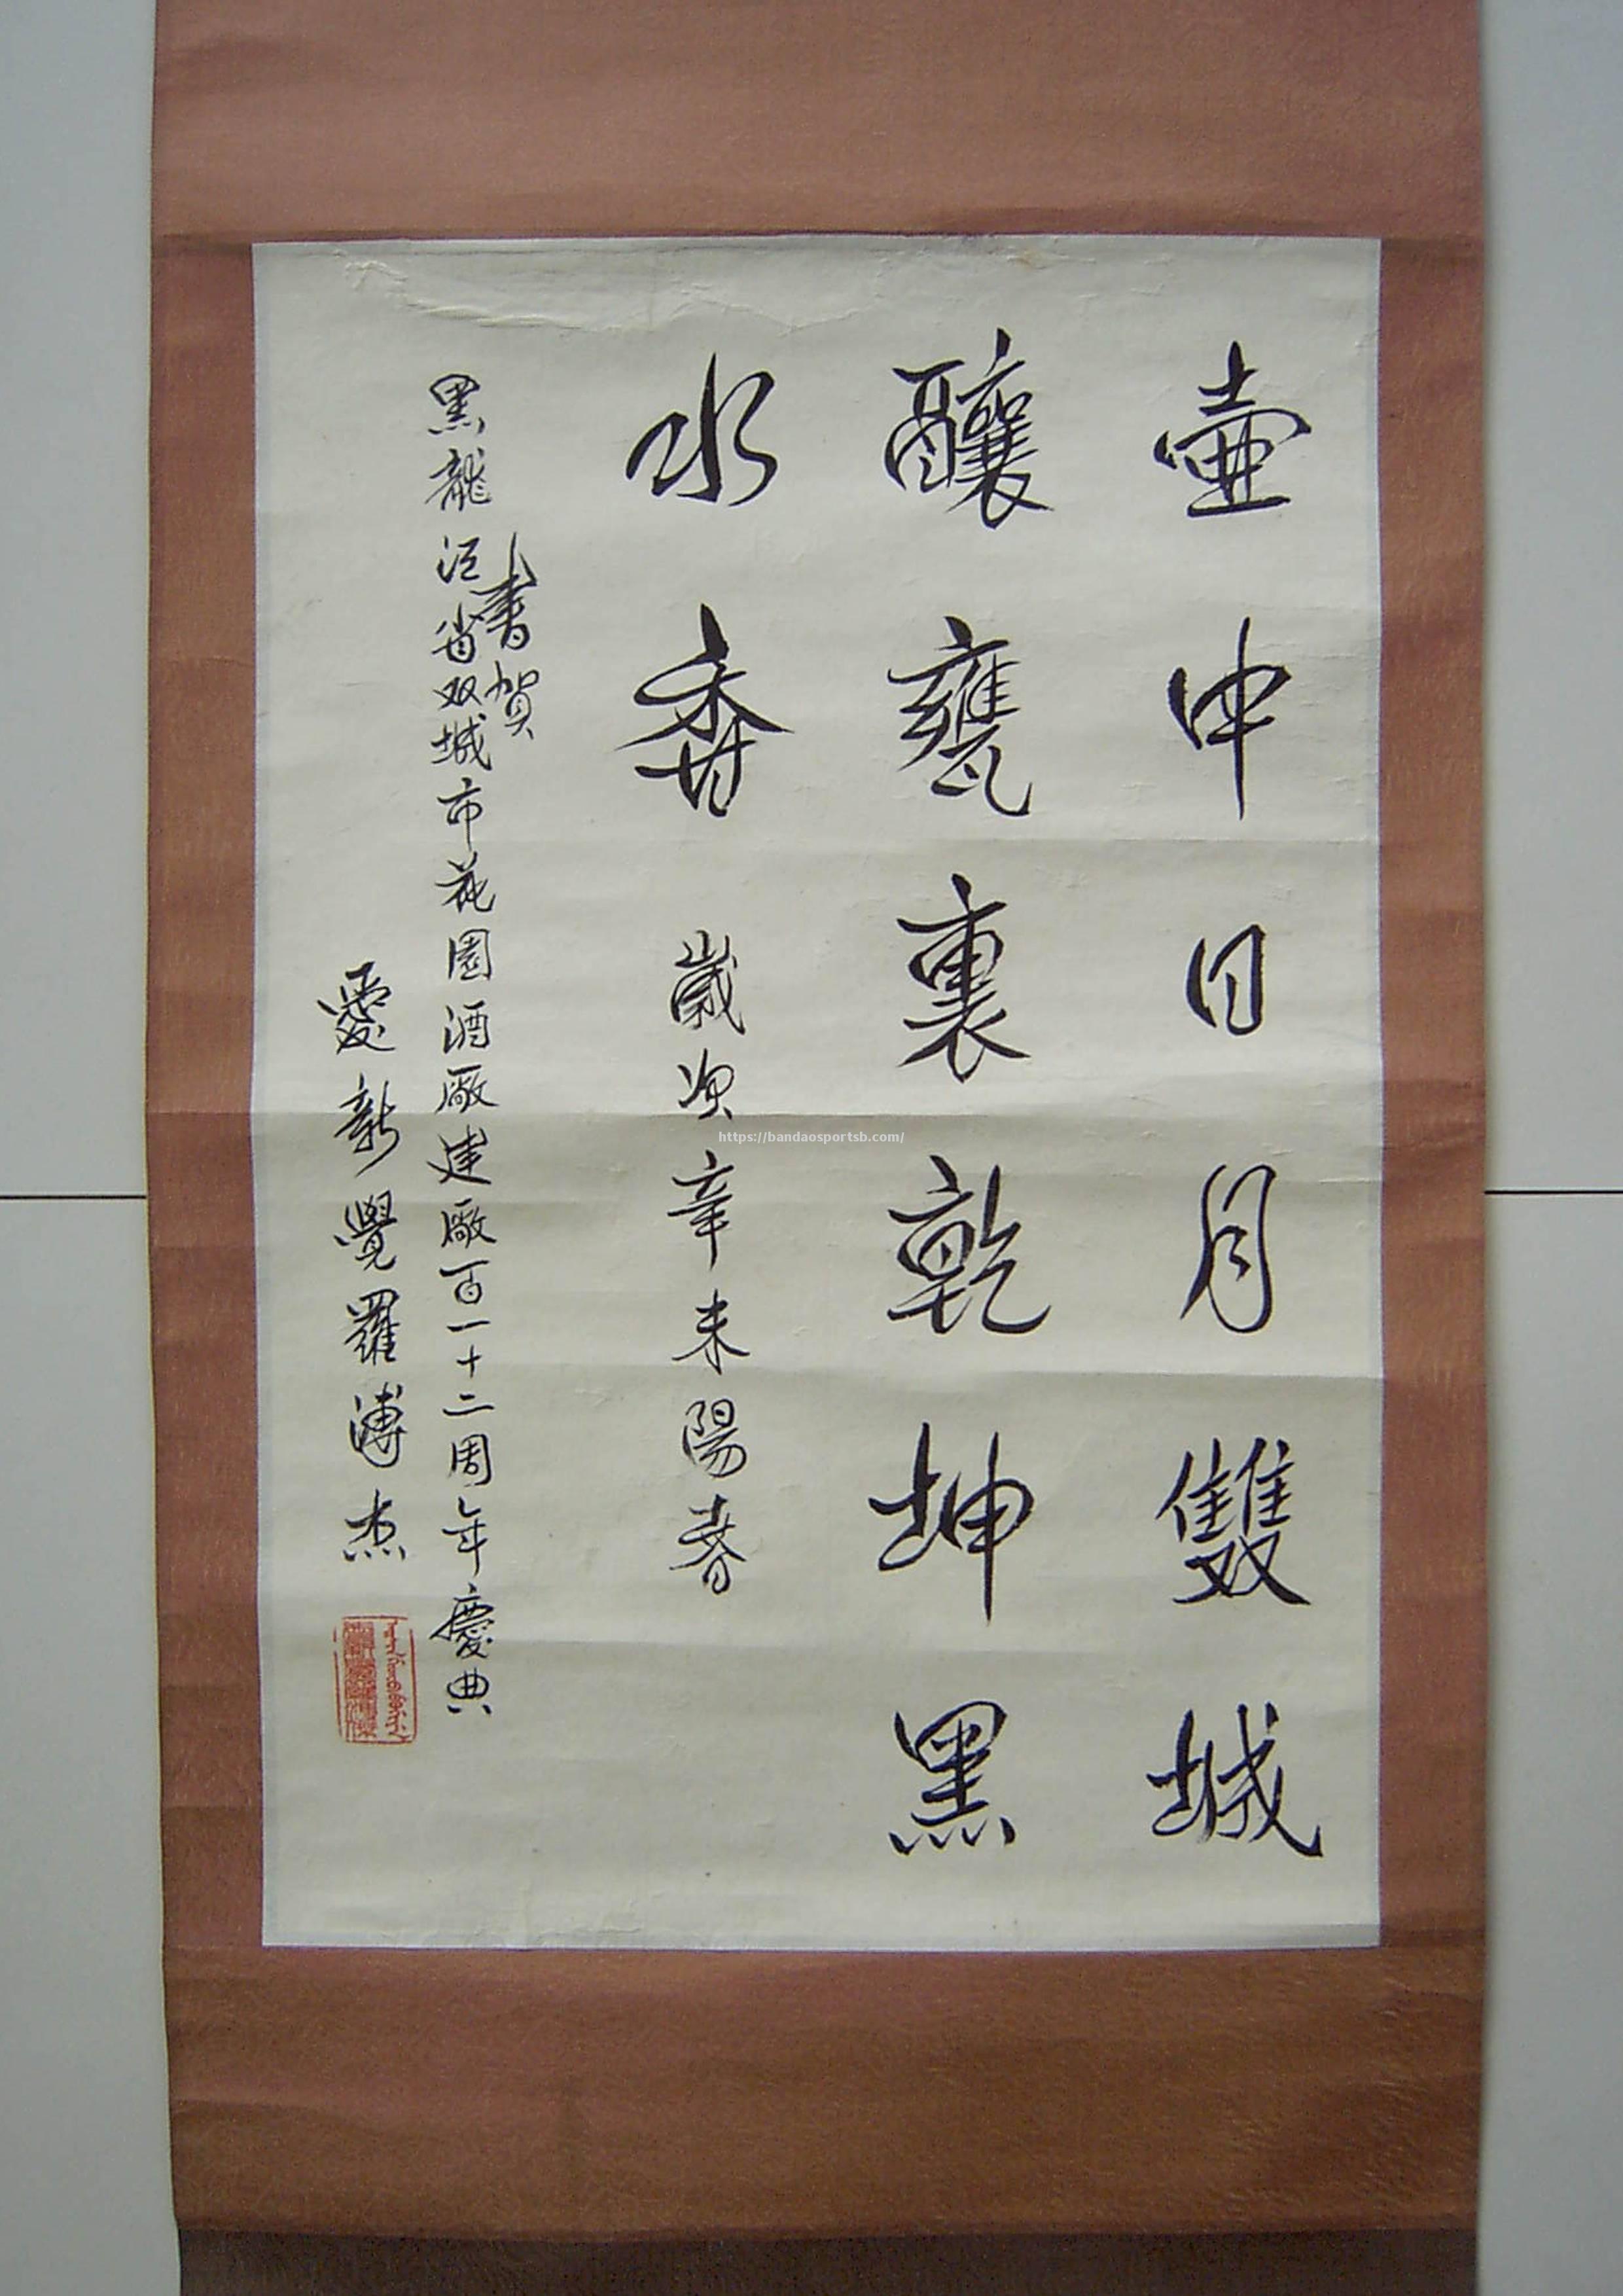 壺中日月雙城
釀甕裏乾坤黑
水香
歲次辛未陽春
書賀
黑龍江省双城市花園酒廠建廠百一十二周年慶典
愛新覺羅溥杰
https://bandaosportsb.com/